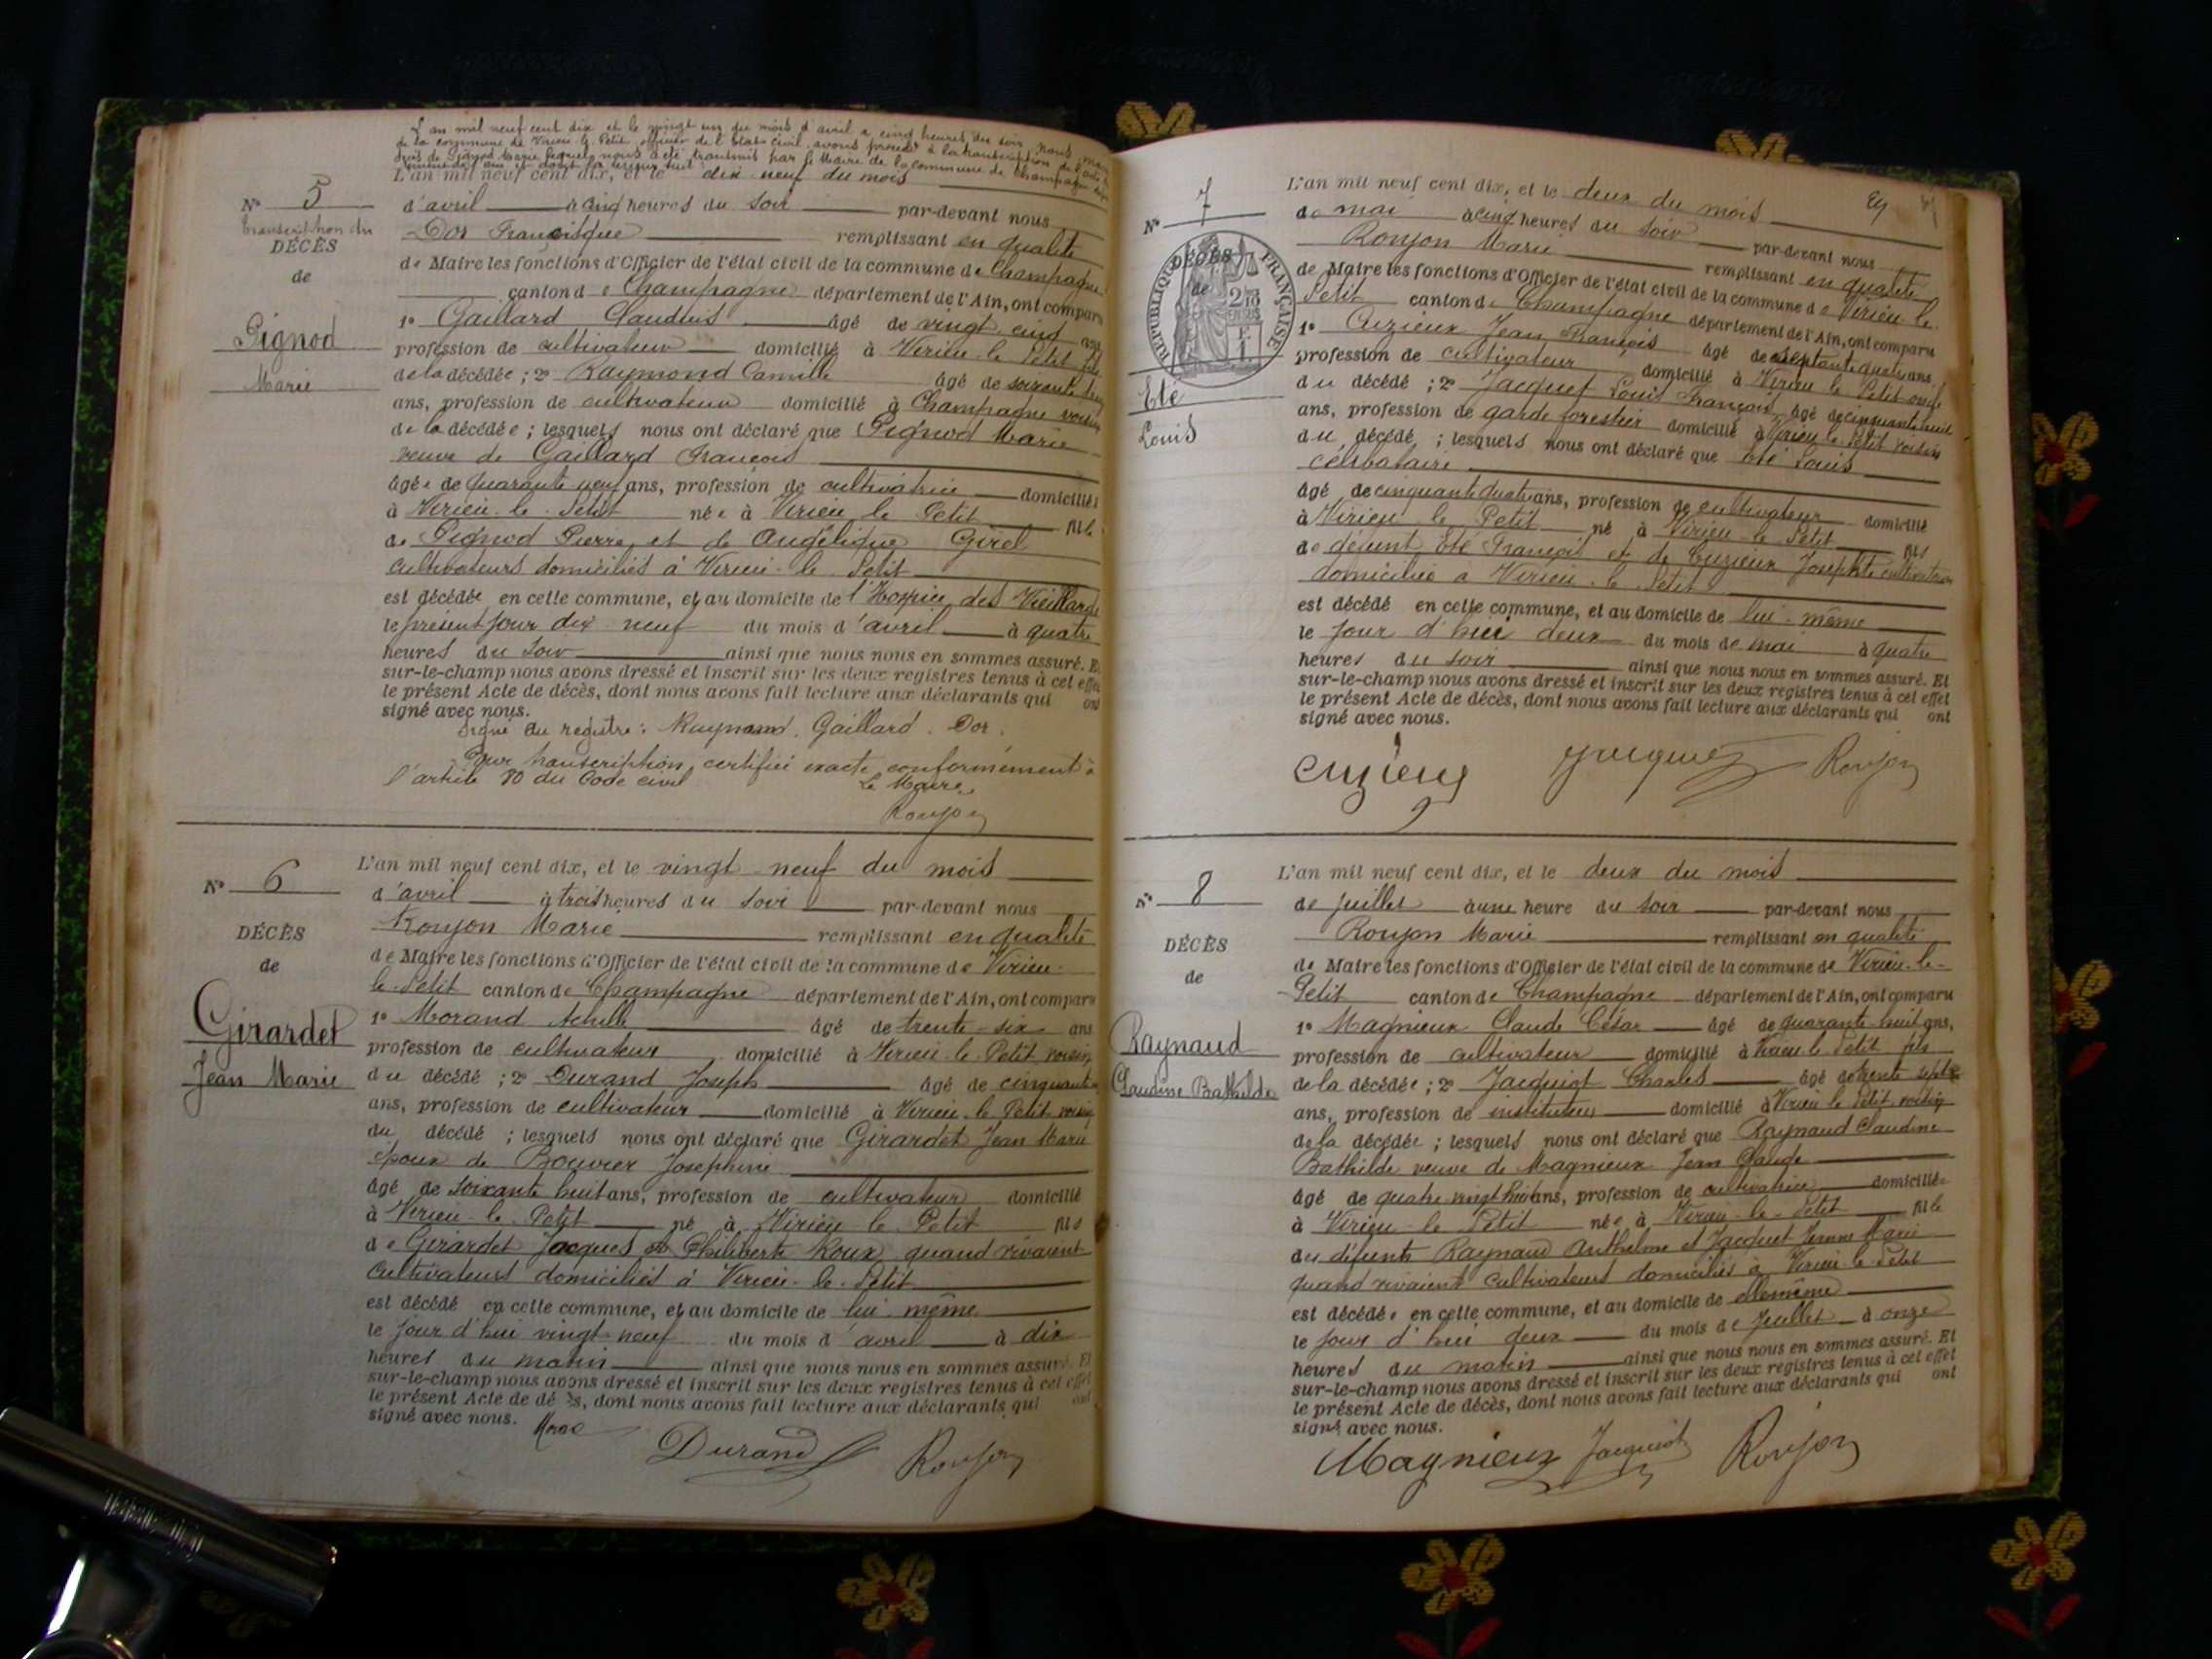 L'an mil neuf cent dix et le vingt un du mois d'avril à cinq heures du soir, nous, maire
de la commune de Virieu-le-Petit, officier de l'état-civil, avons procédé à la transcription de l'acte de
décès de Pignod Marie lequel nous a été transmis par le Maire de la commune de Champagne
L'an mil neuf cent dix, et le dix neuf du mois
N° 5
d'avril à cinq heures du soir par-devant nous
transcription du
Dor Francisque remplissant en qualité
DÉCÈS
de Maire les fonctions d'Officier de l'état civil de la commune de Champagne
de
canton de Champagne département de l'Ain, ont comparu
1° Gaillard Claudius âgé de vingt cinq ans
Pignod
profession de cultivateur domicilié à Virieu-le-Petit fils
Marie
de la décédée ; 2° Raymond Camille âgé de soixante
ans, profession de cultivateur domicilié à Champagne voisin
de la décédée ; lesquels nous ont déclaré que Pignod Marie
veuve de Gaillard François
âgée de quarante neuf ans, profession de cultivatrice domiciliée
à Virieu-le-Petit née à Virieu le Petit fille
de Pignod Pierre et de Angélique Girel
cultivateurs domiciliés à Virieu-le-Petit
est décédée en cette commune, et au domicile de l'Hospice des Vieillards
le présent jour dix neuf du mois d'avril à quatre
heures du soir ainsi que nous nous en sommes assuré. Et
sur-le-champ nous avons dressé et inscrit sur les deux registres tenus à cet effet
le présent Acte de décès, dont nous avons fait lecture aux déclarants qui ont
signé avec nous.
Signé au registre : Raymond, Gaillard, Dor.
Pour transcription certifiée exacte conformément à
l'article 80 du Code civil Le Maire
Roujon
N° 6
L'an mil neuf cent dix, et le vingt neuf du mois
d'avril à trois heures du soir par-devant nous
DÉCÈS
Roujon Marie remplissant en qualité
de
de Maire les fonctions d'Officier de l'état civil de la commune de Virieu-
le-Petit canton de Champagne département de l'Ain, ont comparu
Girardet
1° Morand Achille âgé de trente-six ans
profession de cultivateur domicilié à Virieu-le-Petit voisin
Jean Marie
du décédé ; 2° Durand Joseph âgé de cinquante
ans, profession de cultivateur domicilié à Virieu-le-Petit voisin
du décédé ; lesquels nous ont déclaré que Girardet Jean Marie
époux de Bouvier Joséphine
âgé de soixante huit ans, profession de cultivateur domicilié
à Virieu-le-Petit né à Virieu-le-Petit fils
de Girardet Jacques et Philiberte Roux quand vivaient
cultivateurs domiciliés à Virieu-le-Petit
est décédé en cette commune, et au domicile de lui-même
le jour d'hui vingt-neuf du mois d'avril à dix
heures du matin ainsi que nous nous en sommes assuré. Et
sur-le-champ nous avons dressé et inscrit sur les deux registres tenus à cet effet
le présent Acte de décès, dont nous avons fait lecture aux déclarants qui ont
signé avec nous.
Durand Roujon
89
N° 7
L'an mil neuf cent dix, et le deux du mois
de mai à cinq heures du soir par-devant nous
Roujon Marie remplissant en qualité
DÉCÈS
de
RÉPUBLIQUE FRANÇAISE
de Maire les fonctions d'Officier de l'état civil de la commune de Virieu le
Petit canton de Champagne département de l'Ain, ont comparu
1° Cuzieux Jean François âgé de septante quatre ans
profession de cultivateur domicilié à Virieu le Petit oncle
Eté
du décédé ; 2° Jacquet Louis François âgé de cinquante huit
Louis
ans, profession de garde forestier domicilié à Virieu le Petit voisin
du décédé ; lesquels nous ont déclaré que Eté Louis
célibataire
âgé de cinquante quatre ans, profession de cultivateur domicilié
à Virieu le Petit né à Virieu-le-Petit fils
de défunt Eté François et de Cuzieux Josephte cultivatrice
domiciliée à Virieu-le-Petit
est décédé en cette commune, et au domicile de lui-même
le jour d'hui deux du mois de mai à quatre
heures du soir ainsi que nous nous en sommes assuré. Et
sur-le-champ nous avons dressé et inscrit sur les deux registres tenus à cet effet
le présent Acte de décès, dont nous avons fait lecture aux déclarants qui ont
signé avec nous.
Cuzieux Jacquet Roujon
N° 8
L'an mil neuf cent dix, et le deux du mois
de juillet à une heure du soir par-devant nous
DÉCÈS
Roujon Marie remplissant en qualité
de
de Maire les fonctions d'Officier de l'état civil de la commune de Virieu-le-
Petit canton de Champagne département de l'Ain, ont comparu
Raynaud
1° Magnieux Claude César âgé de quarante-huit ans,
profession de cultivateur domicilié à Virieu-le-Petit fils
Claudine Bathilde
de la décédée ; 2° Jacquiot Charles âgé de trente sept
ans, profession de instituteur domicilié à Virieu le Petit voisin
de la décédée ; lesquels nous ont déclaré que Raynaud Claudine
Bathilde veuve de Magnieux Jean Claude
âgé de quatre-vingt huit ans, profession de cultivatrice domiciliée
à Virieu-le-Petit née à Virieu-le-Petit fille
des défunts Raynaud Anthelme et Jacquet Jeanne Marie
quand vivaient cultivateurs domiciliés à Virieu-le-Petit
est décédée en cette commune, et au domicile de elle même
le jour d'hui deux du mois de juillet à onze
heures du matin ainsi que nous nous en sommes assuré. Et
sur-le-champ nous avons dressé et inscrit sur les deux registres tenus à cet effet
le présent Acte de décès, dont nous avons fait lecture aux déclarants qui ont
signé avec nous.
Magnieux Jacquiot Roujon